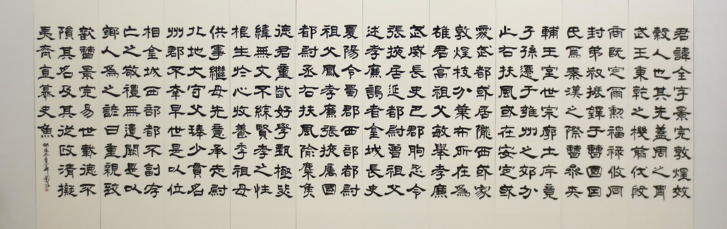 君諱全字景完敦煌效
穀人也其先蓋周之胄
武王秉乾之機翦伐殷
商既定爾勳福祿攸同
封弟叔振鐸于曹國因
氏焉秦漢之際曹參夾
輔王室世宗廓土斥竟
子孫遷于雍州之郊分
止右扶風或在安定或
處武都或居隴西或家
敦煌枝分葉布所在為
雄君高祖父敏舉孝廉
武威長史巴郡朐忍令
張掖居延都尉曾祖父
述孝廉謁者金城長史
夏陽令蜀郡西部都尉
祖父鳳孝廉張掖屬國
都尉丞右扶風隃麋侯
德君童齔好學甄極毖
緯無文不綜賢孝之性
根生於心收養季祖母
供事繼母先意承志尉
北地太守父琫少貫名
州郡不幸早世是以位
相金城西部都不副存
亡之敬禮無遺闕是以
鄉人為之諺曰重親致
歡曹景完易世載德不
隕其名及其從政清擬
夷齊直慕史魚